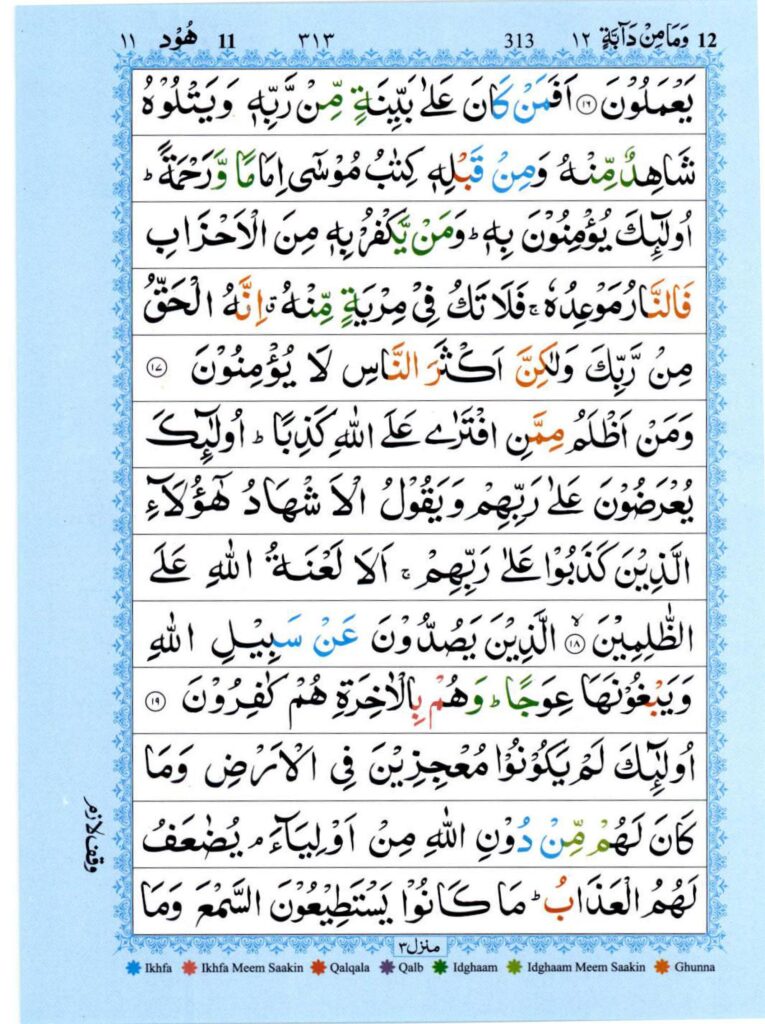 12 وَمَا مِنْ دَآبَّةٍ ١٢ 313 ٣١٣ 11 هُوْد ١١
يَعْمَلُوْنَ ۝١٦ اَفَمَنْ كَانَ عَلٰى بَيِّنَةٍ مِّنْ رَّبِّهٖ وَيَتْلُوْهُ
شَاهِدٌ مِّنْهُ وَمِنْ قَبْلِهٖ كِتٰبُ مُوْسٰٓى اِمَامًا وَّرَحْمَةً ؕ
اُولٰٓئِكَ يُؤْمِنُوْنَ بِهٖ ؕ وَمَنْ يَّكْفُرْ بِهٖ مِنَ الْاَحْزَابِ
فَالنَّارُ مَوْعِدُهٗ ۚ فَلَا تَكُ فِىْ مِرْيَةٍ مِّنْهُ ۗ اِنَّهُ الْحَقُّ
مِنْ رَّبِّكَ وَلٰكِنَّ اَكْثَرَ النَّاسِ لَا يُؤْمِنُوْنَ ۝١٧
وَمَنْ اَظْلَمُ مِمَّنِ افْتَرٰى عَلَى اللّٰهِ كَذِبًا ؕ اُولٰٓئِكَ
يُعْرَضُوْنَ عَلٰى رَبِّهِمْ وَيَقُوْلُ الْاَشْهَادُ هٰٓؤُلَآءِ
الَّذِيْنَ كَذَبُوْا عَلٰى رَبِّهِمْ ۚ اَلَا لَعْنَةُ اللّٰهِ عَلَى
الظّٰلِمِيْنَ ۙ۝١٨ الَّذِيْنَ يَصُدُّوْنَ عَنْ سَبِيْلِ اللّٰهِ
وَيَبْغُوْنَهَا عِوَجًا ؕ وَهُمْ بِالْاٰخِرَةِ هُمْ كٰفِرُوْنَ ۝١٩
اُولٰٓئِكَ لَمْ يَكُوْنُوْا مُعْجِزِيْنَ فِى الْاَرْضِ وَمَا
كَانَ لَهُمْ مِّنْ دُوْنِ اللّٰهِ مِنْ اَوْلِيَآءَ ۘ يُضٰعَفُ
وقف لازم
لَهُمُ الْعَذَابُ ؕ مَا كَانُوْا يَسْتَطِيْعُوْنَ السَّمْعَ وَمَا
منزل ٣
Ikhfa Ikhfa Meem Saakin Qalqala Qalb Idghaam Idghaam Meem Saakin Ghunna